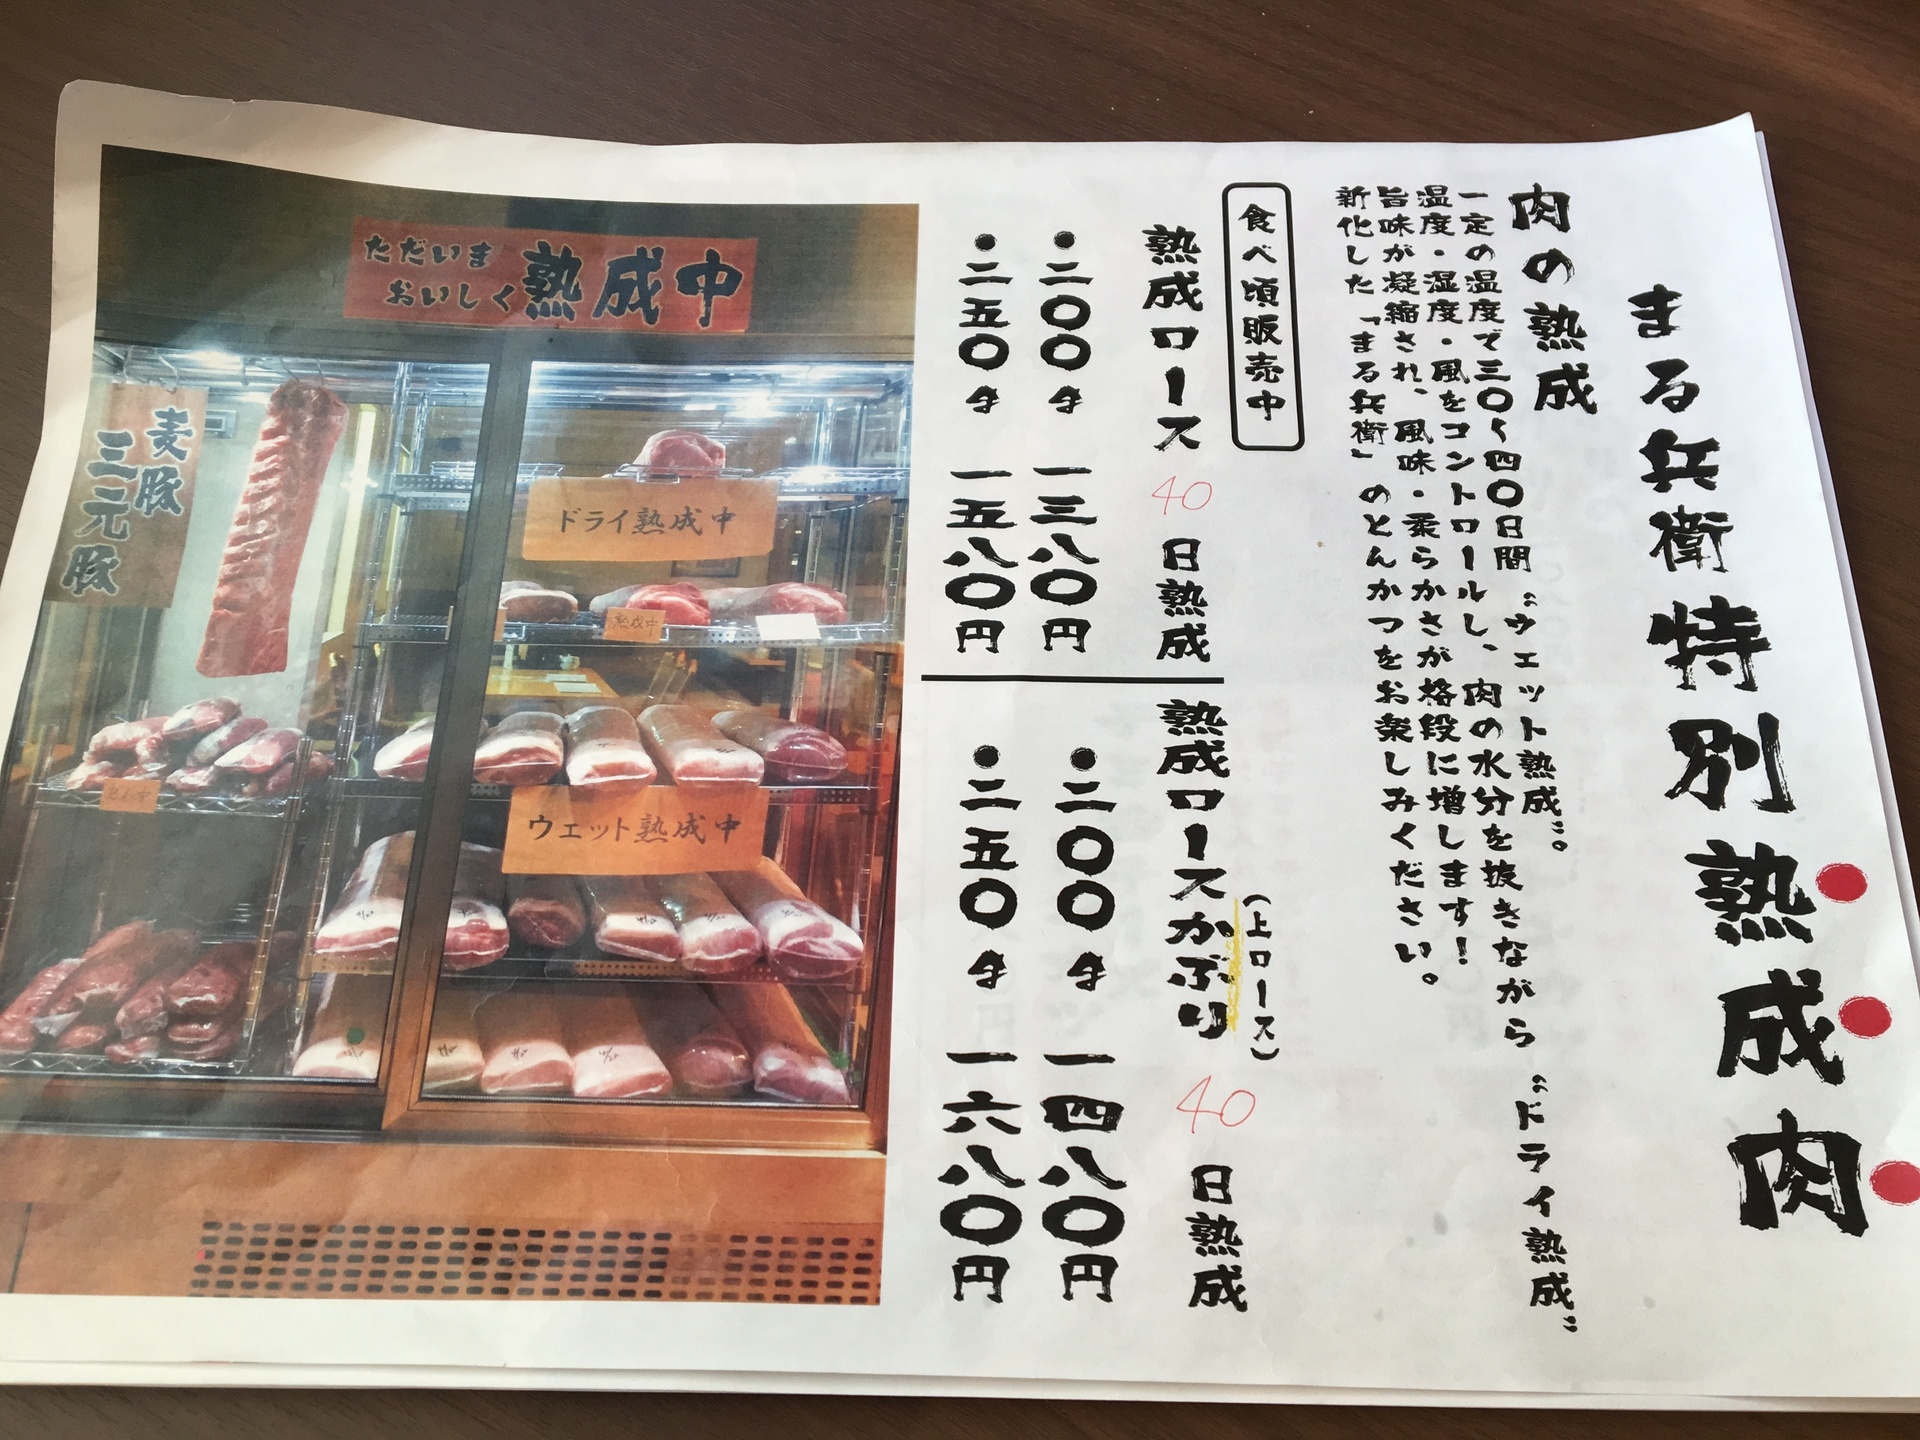 まる兵衛特別熟成肉
肉の熟成
一定の温度で三〇〜四〇日間〝ウェット熟成〟。〝ドライ熟成〟
温度・湿度・風をコントロールし、肉の水分を抜きながら
旨味が凝縮され、風味・柔らかさが格段に増します!
新化した「まる兵衛」のとんかつをお楽しみください。
食べ頃販売中
熟成ロース 40 日熟成
●二〇〇g 一三八〇円
●二五〇g 一五八〇円
熟成ロースかぶり(上ロース) 40 日熟成
●二〇〇g 一四八〇円
●二五〇g 一六八〇円
ただいま
おいしく
熟成中
麦豚
三元豚
ドライ熟成中
熟成中
ウェット熟成中